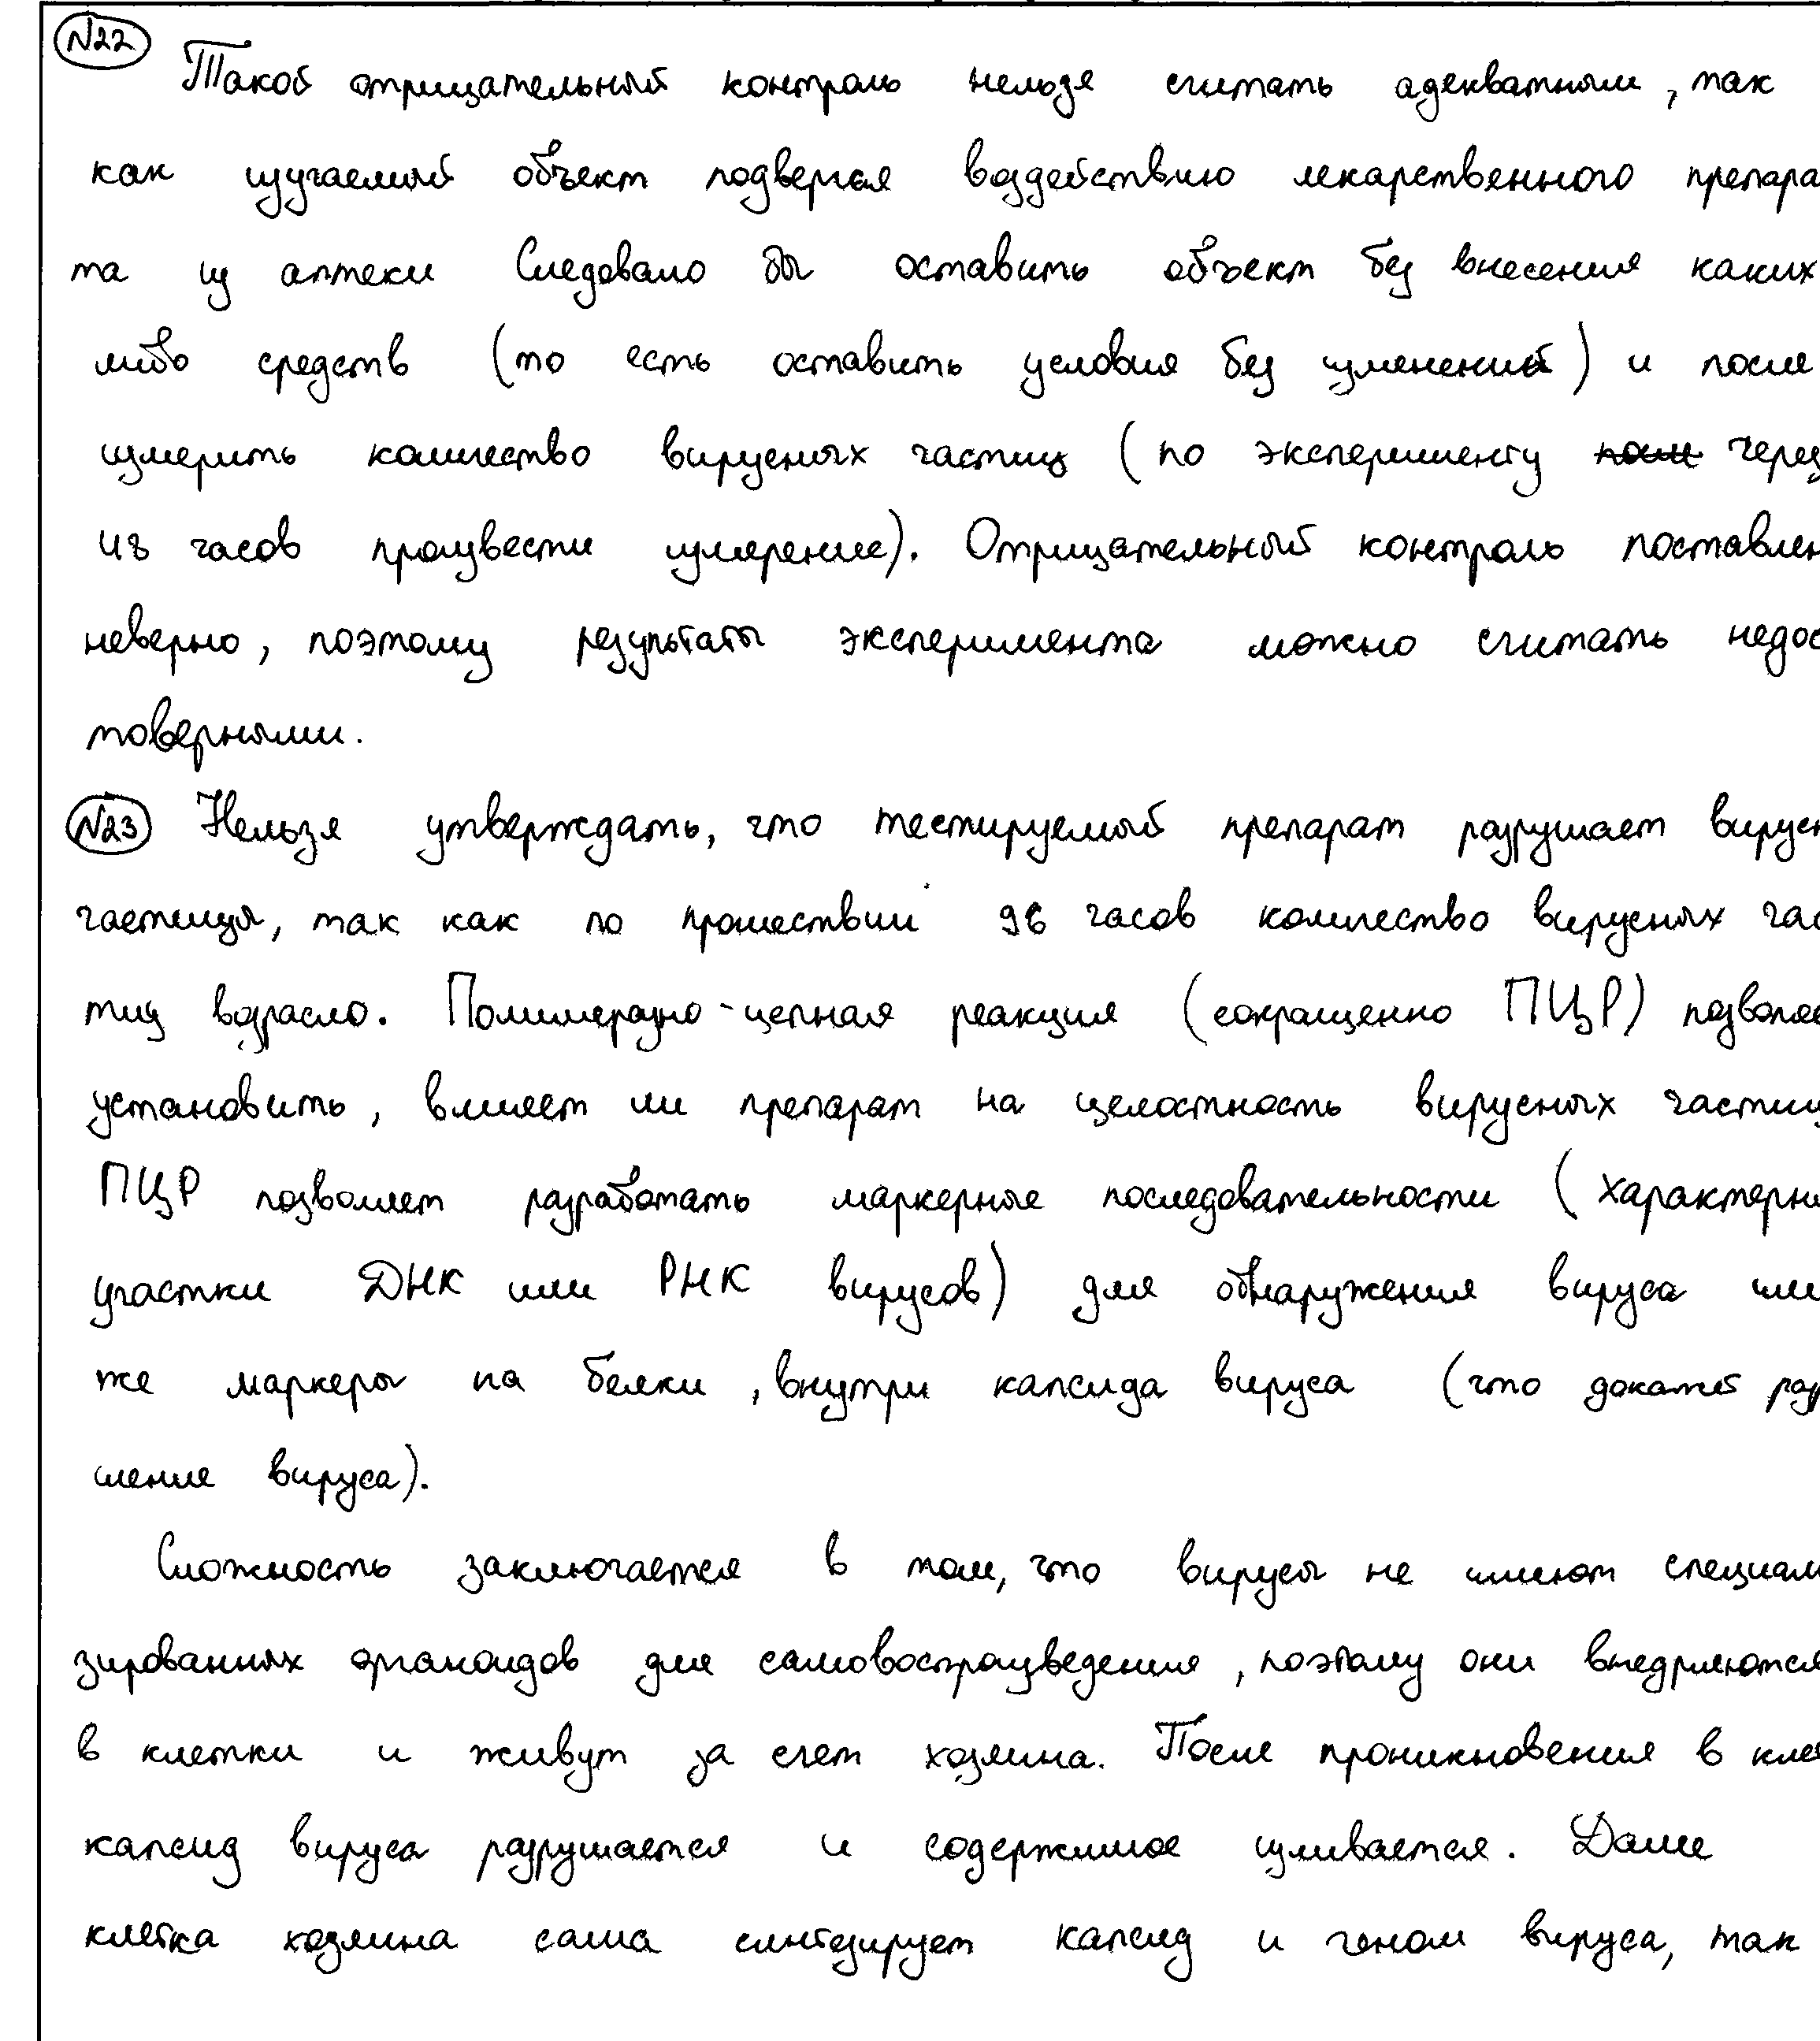 N22
Такой отрицательный контроль нельзя считать адекватным, так
как изучаемый объект подвергся воздействию лекарственного препара
та из аптеки Следовало бы оставить объект без внесения каких
либо средств (то есть оставить условия без изменений) и после
измерить количество вирусных частиц (по эксперименту через
48 часов произвести измерение). Отрицательный контроль поставлен
неверно, поэтому результаты эксперимента можно считать недос
товерными.
N23 Нельзя утверждать, что тестируемый препарат разрушает вирусн
частицы, так как по прошествии 96 часов количество вирусных час
тиц возрасло. Полимеразно-цепная реакция (сокращенно ПЦР) позволяе
установить, влияет ли препарат на целостность вирусных частиц
ПЦР позволяет разработать маркерные последовательности (характерны
участки ДНК или РНК вирусов) для обнаружения вируса или
же маркеры на белки, внутри капсида вируса (что докажет разру
шение вируса).
Сложность заключается в том, что вирусы не имеют специали
зированных органоидов для самовоспроизведения, поэтому они внедряются
в клетки и живут за счет хозяина. После проникновения в кле
капсид вируса разрушается и содержимое изливается. Далее
клетка хозяина сама синтезирует капсид и геном вируса, так